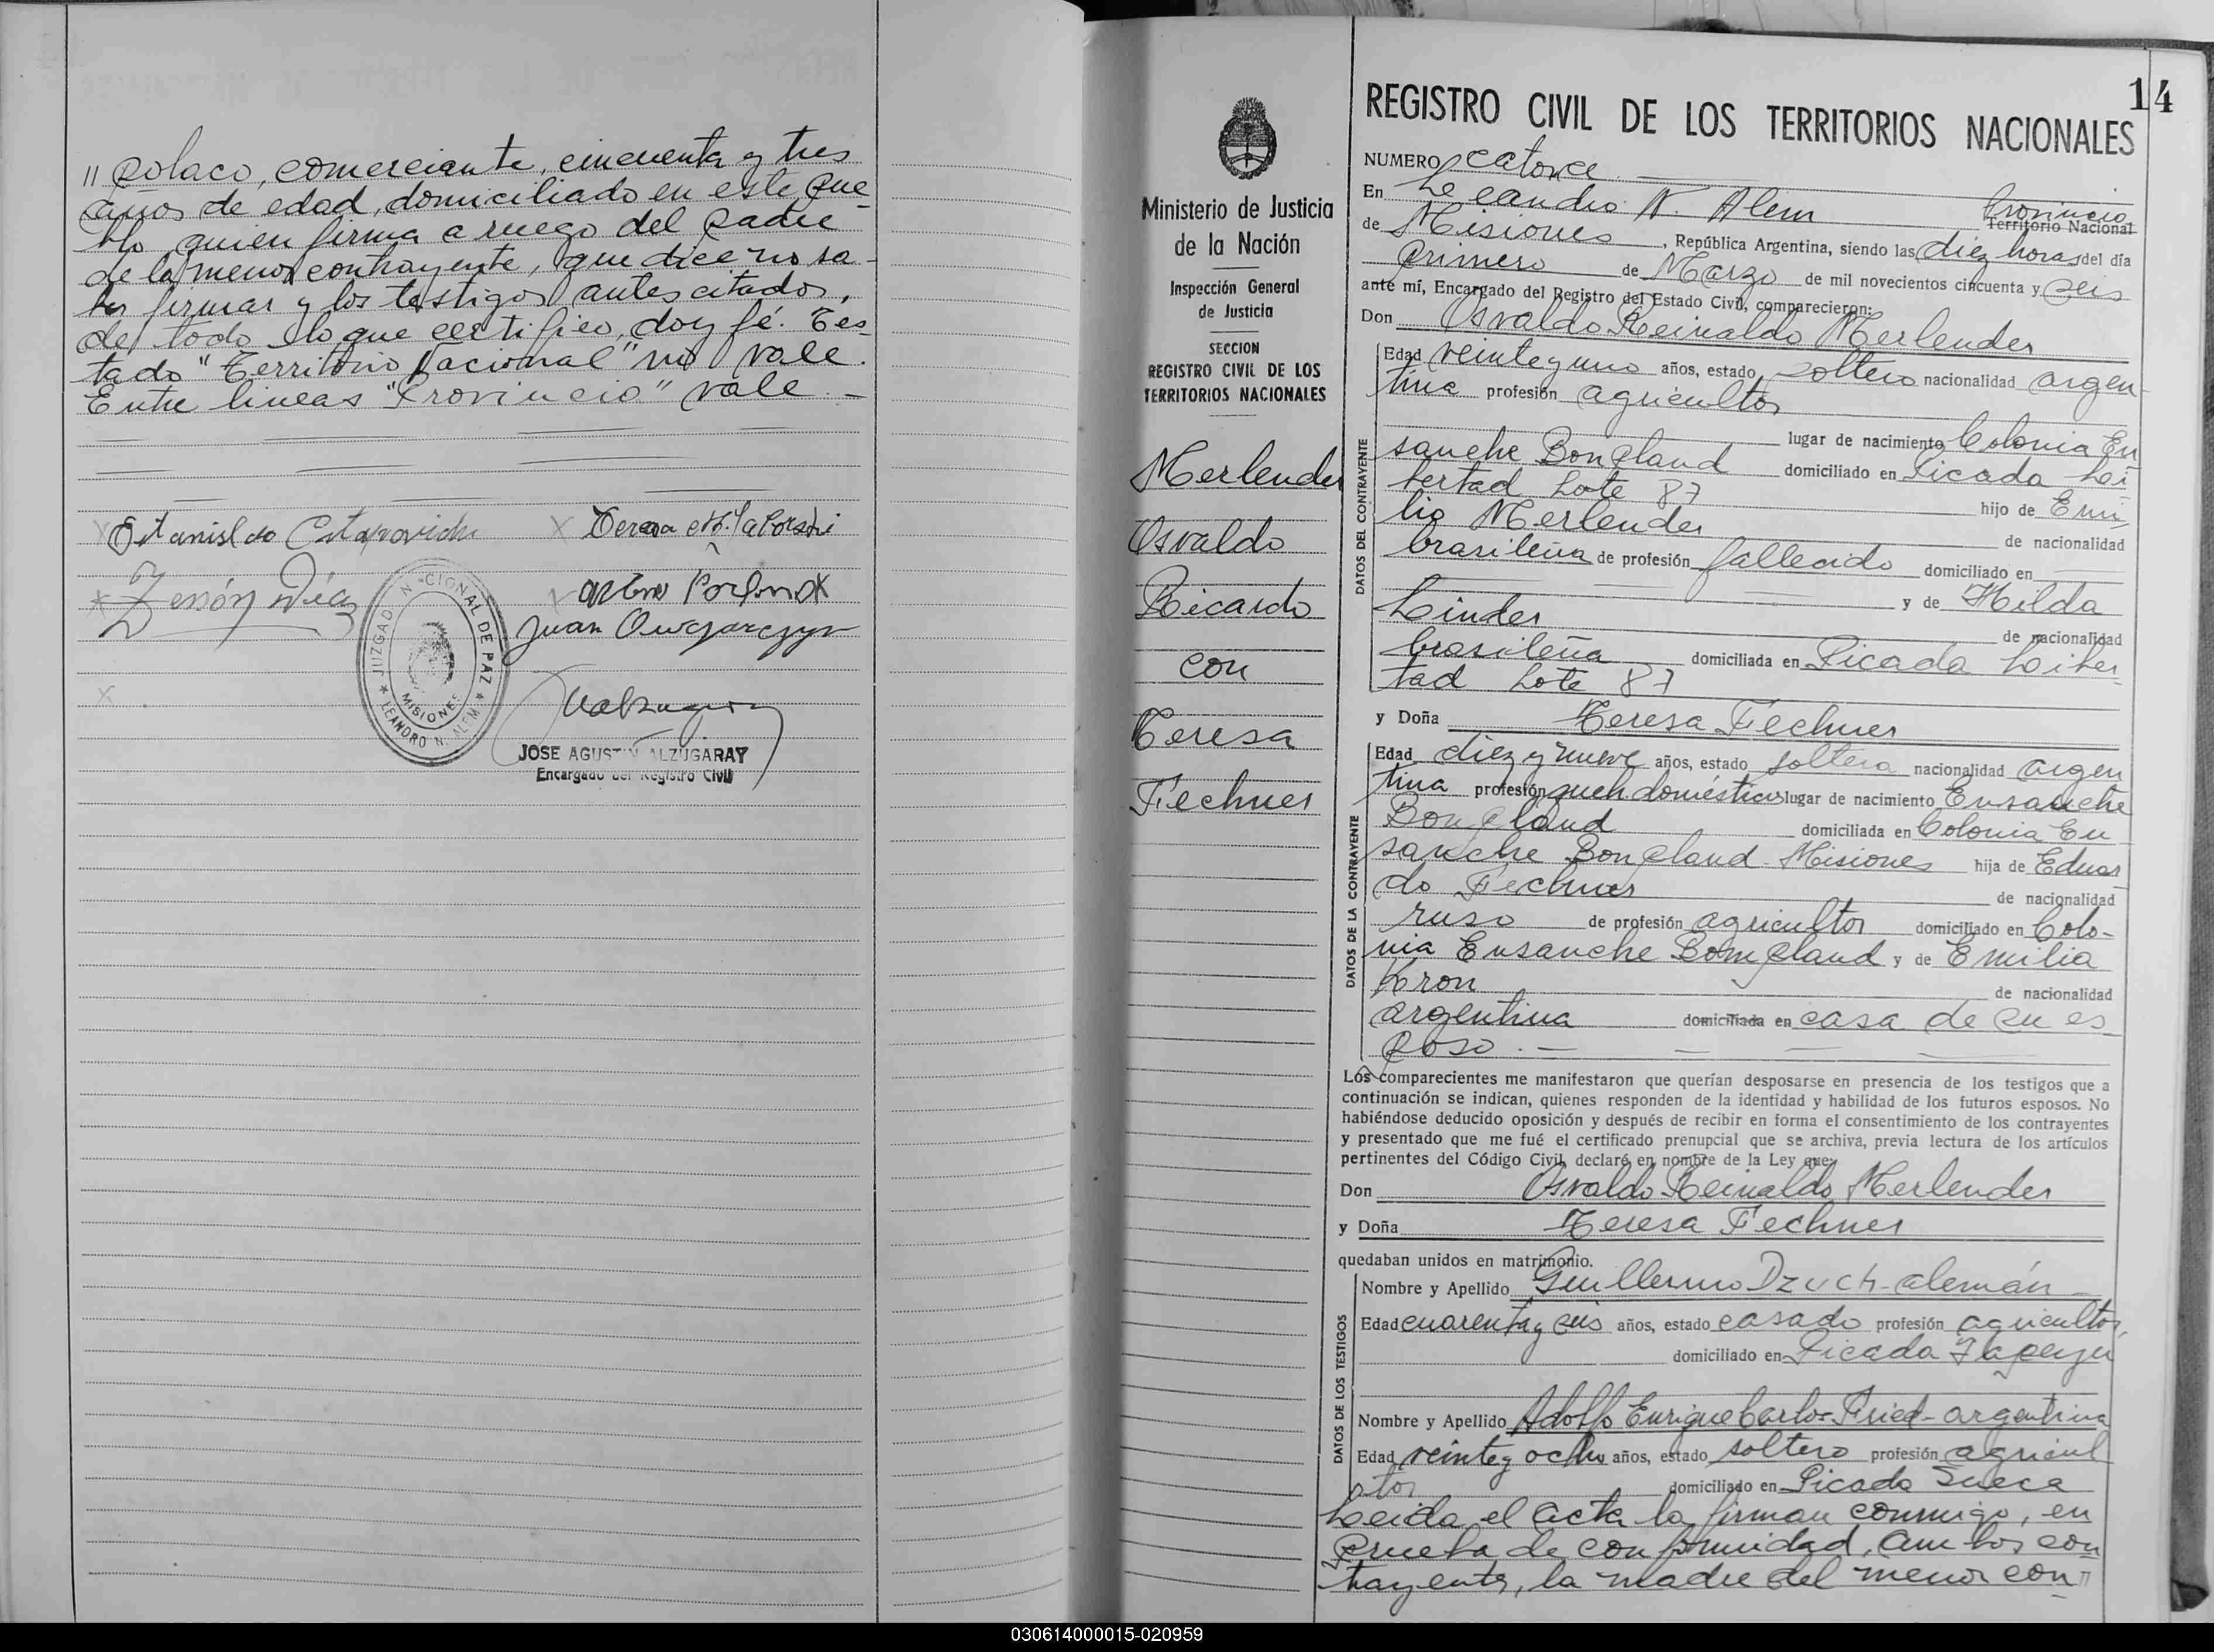 " polaco, comerciante, cincuenta y tres
años de edad, domiciliado en este pue-
blo quien firma a ruego del padre
de la menor contrayente, que dice no sa-
ber firmar y los testigos antes citados,
de todo lo que certifico, doy fé. Tes-
tado "Territorio Nacional" no vale.
Entre lineas "Provincia" vale. —
X X
Zenón Díaz
Juan Owczarczyn
JUZGADO NACIONAL DE PAZ
MISIONES
LEANDRO N. ALEM
JOSE AGUSTIN ALZUGARAY
Encargado del Registro Civil
14
Ministerio de Justicia
de la Nación
Inspección General
de Justicia
SECCION
REGISTRO CIVIL DE LOS
TERRITORIOS NACIONALES
Merlender
Osvaldo
Ricardo
con
Teresa
Fechner
REGISTRO CIVIL DE LOS TERRITORIOS NACIONALES
NUMERO catorce
En Leandro N. Alem Provincia Territorio Nacional
de Misiones, República Argentina, siendo las diez horas del día
primero de Marzo de mil novecientos cincuenta y seis
ante mí, Encargado del Registro del Estado Civil, comparecieron:
Don Osvaldo Reinaldo Merlender
DATOS DEL CONTRAYENTE
Edad veinte y uno años, estado soltero nacionalidad argen-
tina profesión agricultor
lugar de nacimiento Colonia En
sanche Bonpland domiciliado en Picada Lei
bertad Lote 87
hijo de Emi
lio Merlender
de nacionalidad
brasileña de profesión fallecido domiciliado en
y de Hilda
Linder
de nacionalidad
brasileña domiciliada en Picada Loiber
tad Lote 87
y Doña Teresa Fechner
DATOS DE LA CONTRAYENTE
Edad diez y nueve años, estado soltera nacionalidad argen
tina profesión queh. domésticos lugar de nacimiento Ensanche
Bonpland domiciliada en Colonia En
sanche Bonpland Misiones hija de Eduar
do Fechner
de nacionalidad
ruso de profesión agricultor domiciliado en Colo-
nia Ensanche Bompland y de Emilia
Kron
de nacionalidad
argentina domiciliada en casa de su es
poso. —
Los comparecientes me manifestaron que querían desposarse en presencia de los testigos que a
continuación se indican, quienes responden de la identidad y habilidad de los futuros esposos. No
habiéndose deducido oposición y después de recibir en forma el consentimiento de los contrayentes
y presentado que me fué el certificado prenupcial que se archiva, previa lectura de los artículos
pertinentes del Código Civil, declaré en nombre de la Ley que:
Don Osvaldo Reinaldo Merlender
y Doña Teresa Fechner
quedaban unidos en matrimonio.
DATOS DE LOS TESTIGOS
Nombre y Apellido Guillermo Dzuch - alemán
Edad cuarenta y seis años, estado casado profesión agricultor,
domiciliado en Picada Yapeyu
Nombre y Apellido Adolfo Enrique Carlos Fried - argentina
Edad veinte y ocho años, estado soltero profesión agricul
tor domiciliado en Picada Sueca
Leida el acta la firman conmigo, en
prueba de conformidad, ambos con
trayentes, la madre del menor con "
030614000015-020959